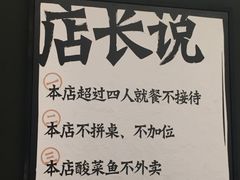 店长说
一 本店超过四人就餐不接待
二 本店不拼桌、不加位
三 本店酸菜鱼不外卖